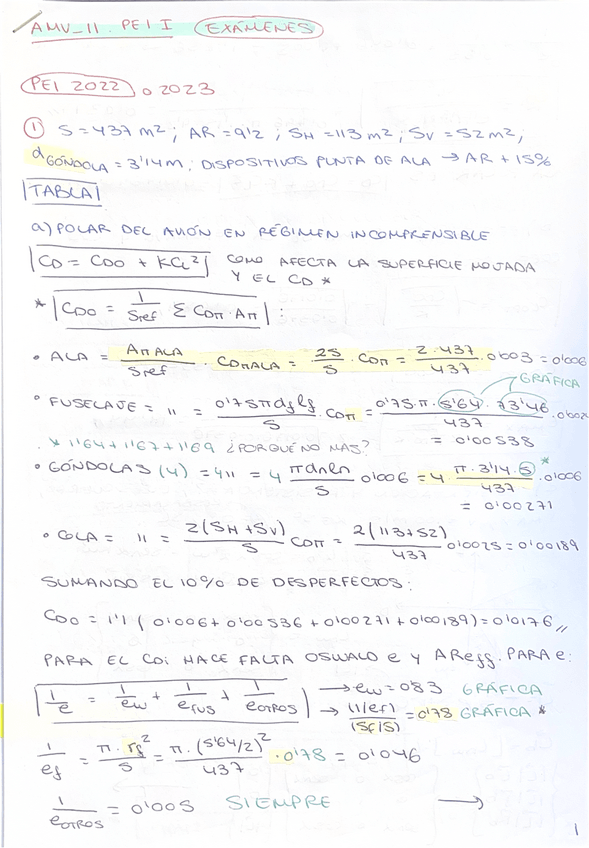 AMV_11. PEI I EXÁMENES
PEI 2022 o 2023
① S = 437 m²; AR = 9'2; SH = 113 m²; SV = 52 m²;
dGÓNDOLA = 3'14m; DISPOSITIVOS PUNTA DE ALA → AR + 15%
|TABLA|
a) POLAR DEL AVIÓN EN RÉGIMEN INCOMPRENSIBLE
CD = CDO + KCL² COMO AFECTA LA SUPERFICIE MOJADA
Y EL CD *
* CDO = 1/Sref Σ CDπ · Aπ :
• ALA = AπALA/Sref · CDπALA = 2S/S · CDπ = 2·437/437 · 0'003 = 0'006
GRÁFICA
• FUSELAJE = " = 0'75πdflf/S · CDπ = 0'75·π·5'64·73'46/437 · 0'002
= 0'00538
* 1'64 + 1'67 + 1'69 ¿PORQUÉ NO MÁS?
• GÓNDOLAS (4) = 4" = 4 πdnln/S 0'006 = 4 · π·3'14·5/437 * · 0'006
= 0'00271
• COLA = " = 2(SH+SV)/S CDπ = 2(113+52)/437 0'0025 = 0'00189
SUMANDO EL 10% DE DESPERFECTOS:
CDO = 1'1 (0'006 + 0'00536 + 0'00271 + 0'00189) = 0'0176 //
PARA EL CDi HACE FALTA OSWALD e Y AReff. PARA e:
1/e = 1/ew + 1/eFUS + 1/eOTROS → ew = 0'83 GRÁFICA
→ (1/ef)/(Sf/S) = 0'78 GRÁFICA *
1/ef = π·rf²/S = π·(5'64/2)²/437 · 0'78 = 0'046
1/eOTROS = 0'005 SIEMPRE →
1